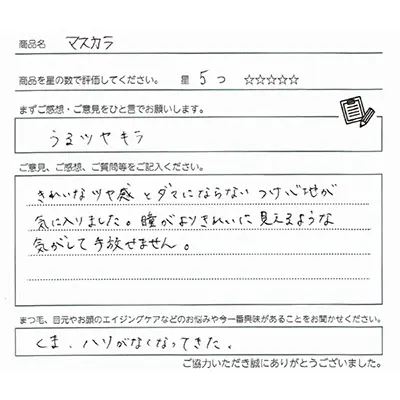 商品名 マスカラ
商品を星の数で評価してください。 星 5つ ☆☆☆☆☆
まずご感想・ご意見をひと言でお願いします。
うるツヤキラ
ご意見、ご感想、ご質問等をご記入ください。
きれいなツヤ感とダマにならないつけ心地が
気に入りました。瞳がよりきれいに見えるような
気がして手放せません。
まつ毛、目元やお顔のエイジングケアなどのお悩みや今一番興味があることをお聞かせください。
くま、ハリがなくなってきた。
ご協力いただき誠にありがとうございました。